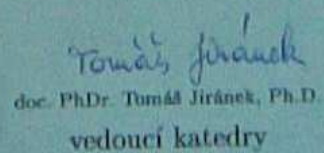 Tomáš Jiránek
doc. PhDr. Tomáš Jiránek, Ph.D.
vedoucí katedry